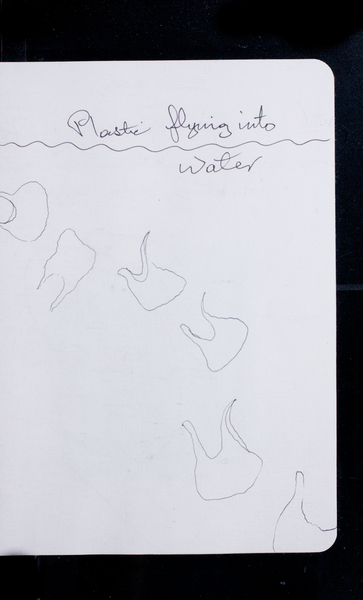 Plastic flying into
Water